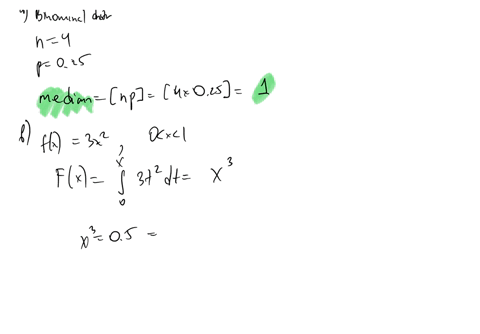 a) Binomial distr
n=4
p=0.25
median=[np]=[4×0.25]= 1
b) f(x)=3x², 0<x<1
F(x)=∫₀ˣ 3t²dt= X³
x³=0.5 =